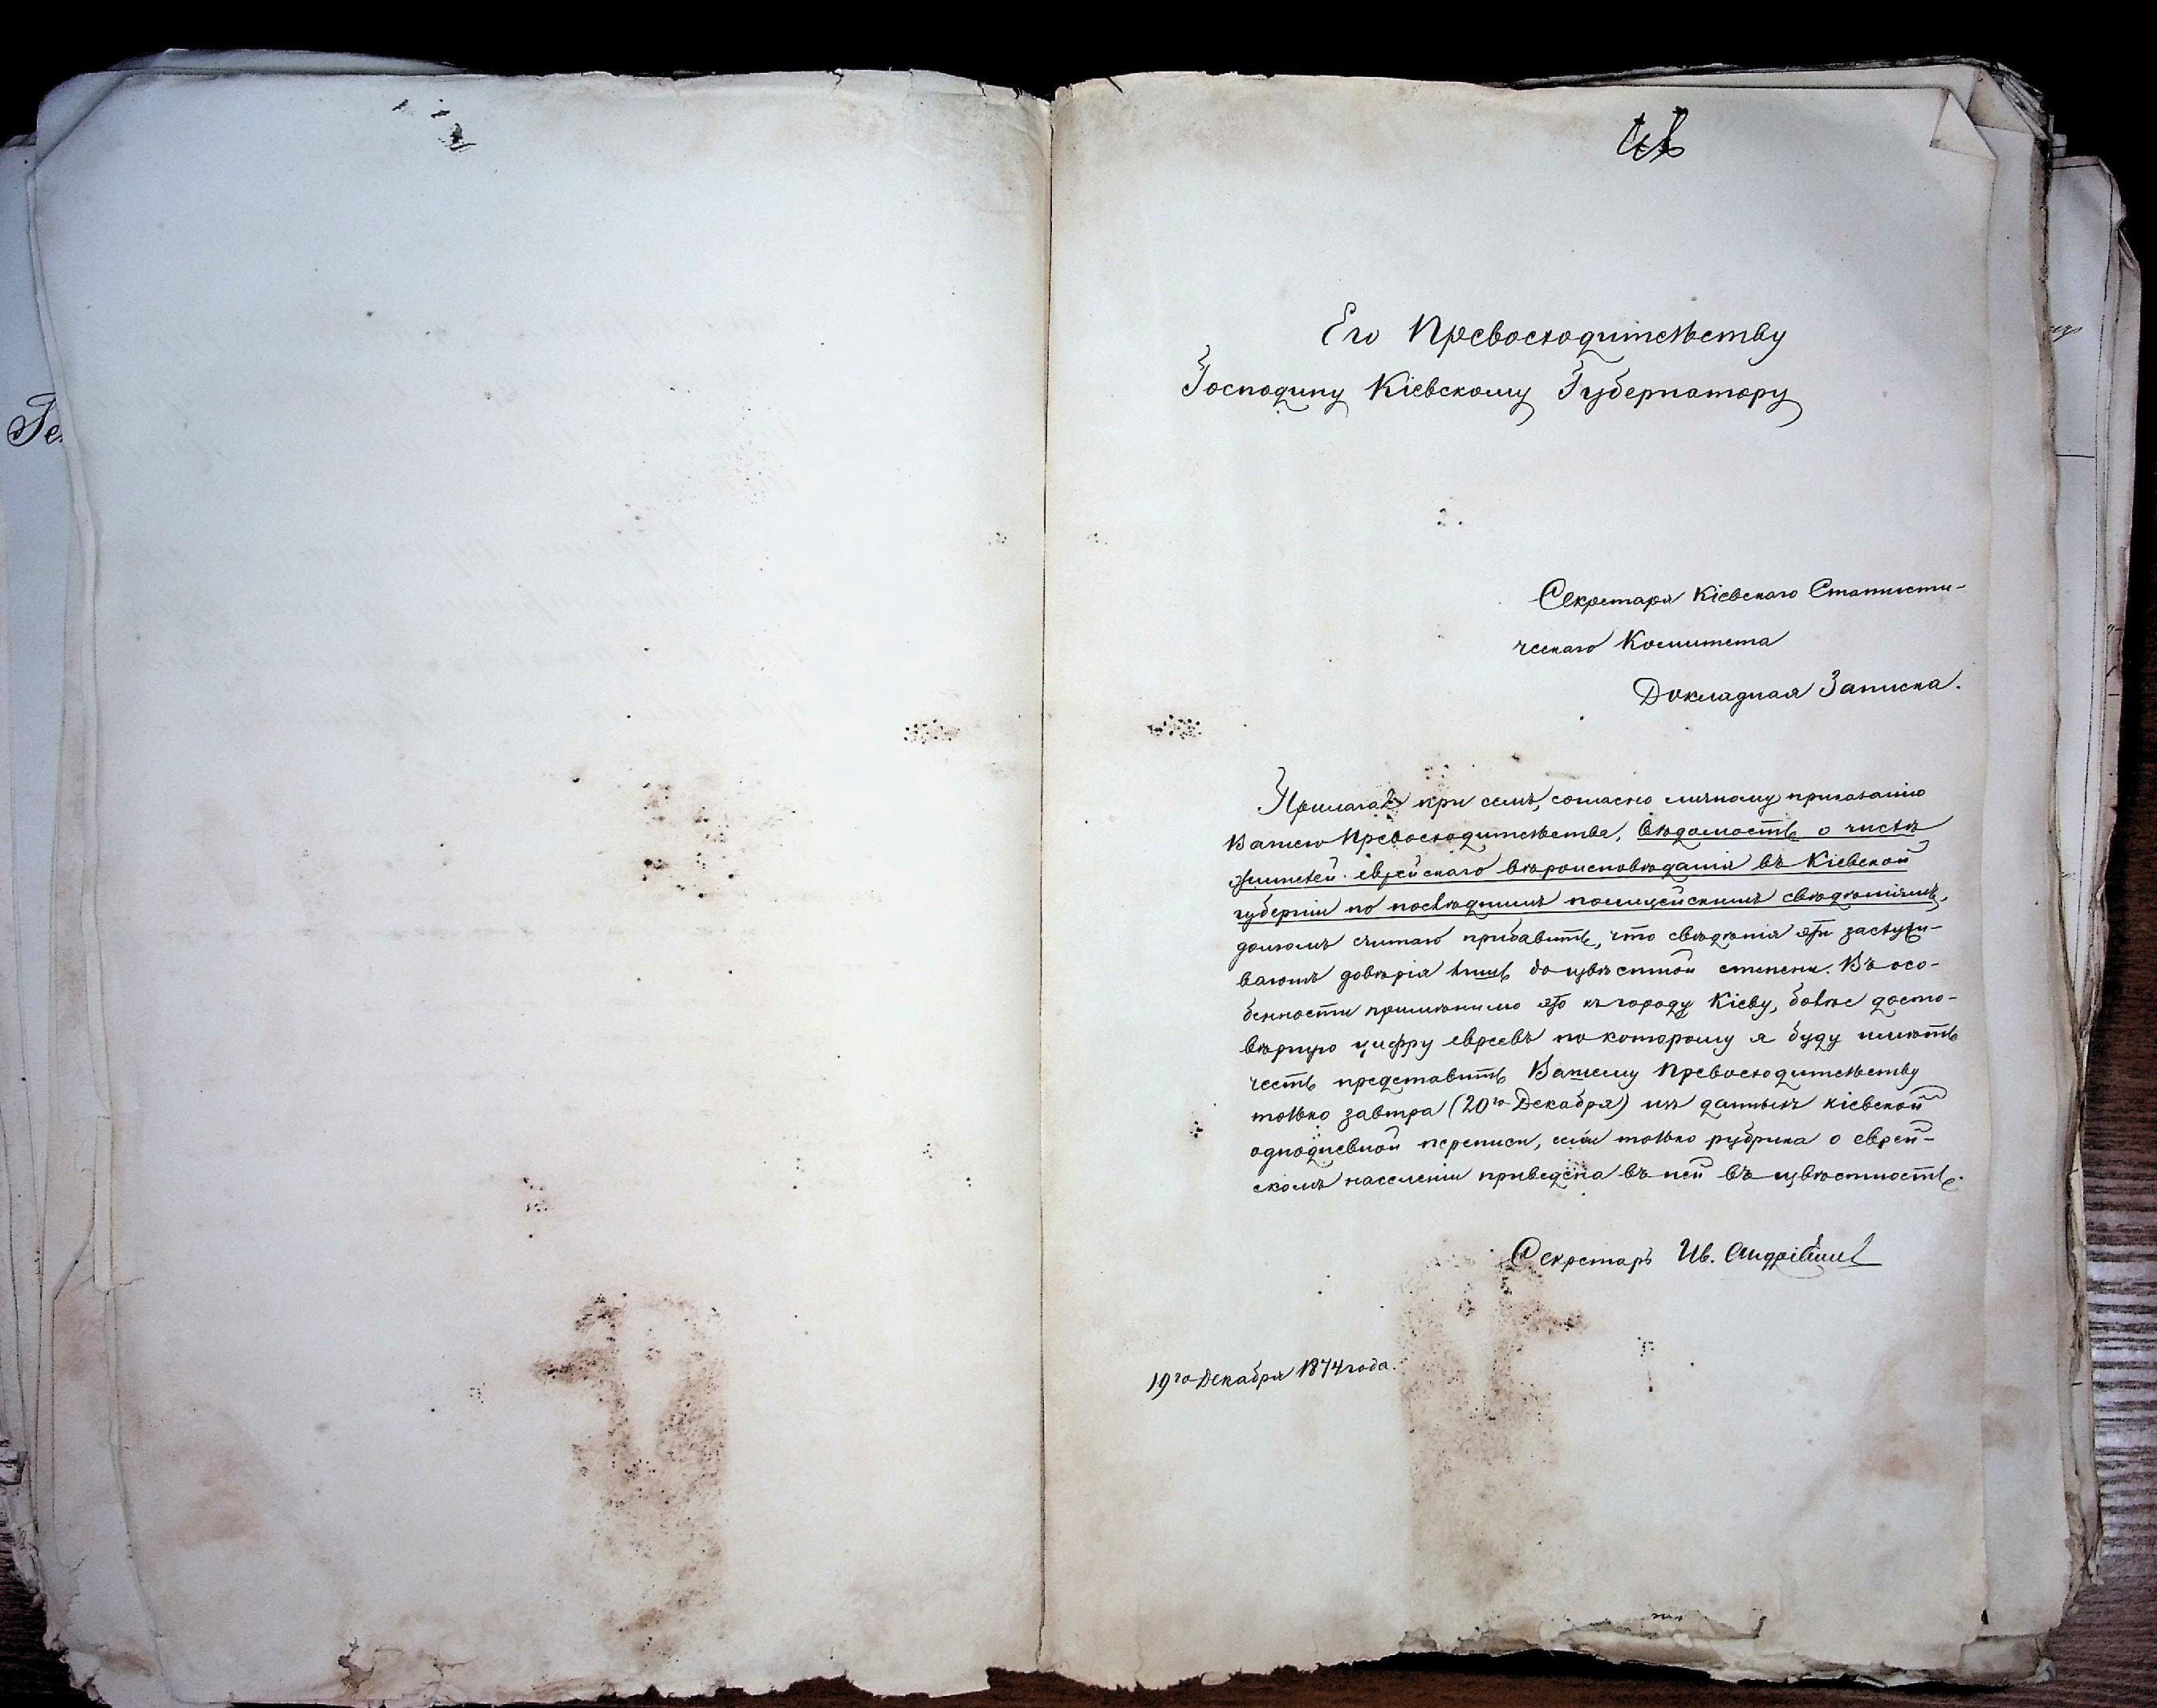 Его Превосходительству
Господину Кіевскому Губернатору
Секретаря Кіевскаго Статисти-
ческаго Комитета
Докладная Записка.
Прилагая при семъ, согласно личному приказанію
Вашего Превосходительства, вѣдомость о числѣ
жителей еврейскаго вѣроисповѣданія въ Кіевской
губерніи по послѣднимъ полицейскимъ свѣдѣніямъ,
долгомъ считаю прибавить, что свѣдѣнія эти заслужи-
ваютъ довѣрія лишь до извѣстной степени. Въ осо-
бенности примѣнимо это къ городу Кіеву, болѣе досто-
вѣрную цифру евреевъ по которому я буду имѣть
честь представить Вашему Превосходительству
только завтра (20го Декабря) изъ данныхъ кіевской
однодневной переписи, если только рубрика о еврей-
скомъ населеніи приведена въ ней въ извѣстность.
Секретарь Ив.
19го Декабря 1874 года.